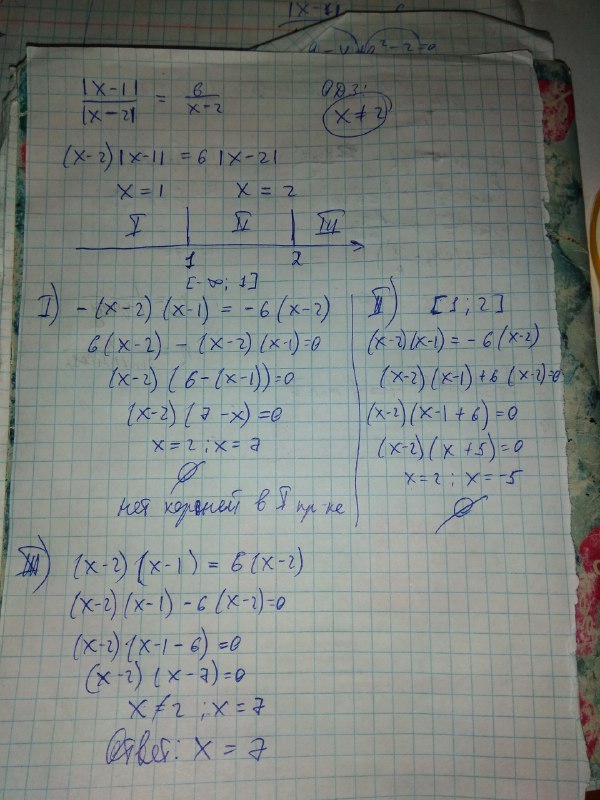 |x-1|
|x-1|/|x-2| = 6/x-2 ОДЗ: x≠2
(x-2)|x-1| = 6|x-2|
x=1 x=2
I II III
1 2
[-∞; 1]
I) -(x-2)(x-1) = -6(x-2)
6(x-2) - (x-2)(x-1)=0
(x-2)(6-(x-1))=0
(x-2)(7-x)=0
x=2; x=7
∅
нет корней в I пр-ке
II) [1; 2]
(x-2)(x-1) = -6(x-2)
(x-2)(x-1)+6(x-2)=0
(x-2)(x-1+6)=0
(x-2)(x+5)=0
x=2; x=-5
∅
III) (x-2)(x-1) = 6(x-2)
(x-2)(x-1)-6(x-2)=0
(x-2)(x-1-6)=0
(x-2)(x-7)=0
x≠2; x=7
Ответ: x=7